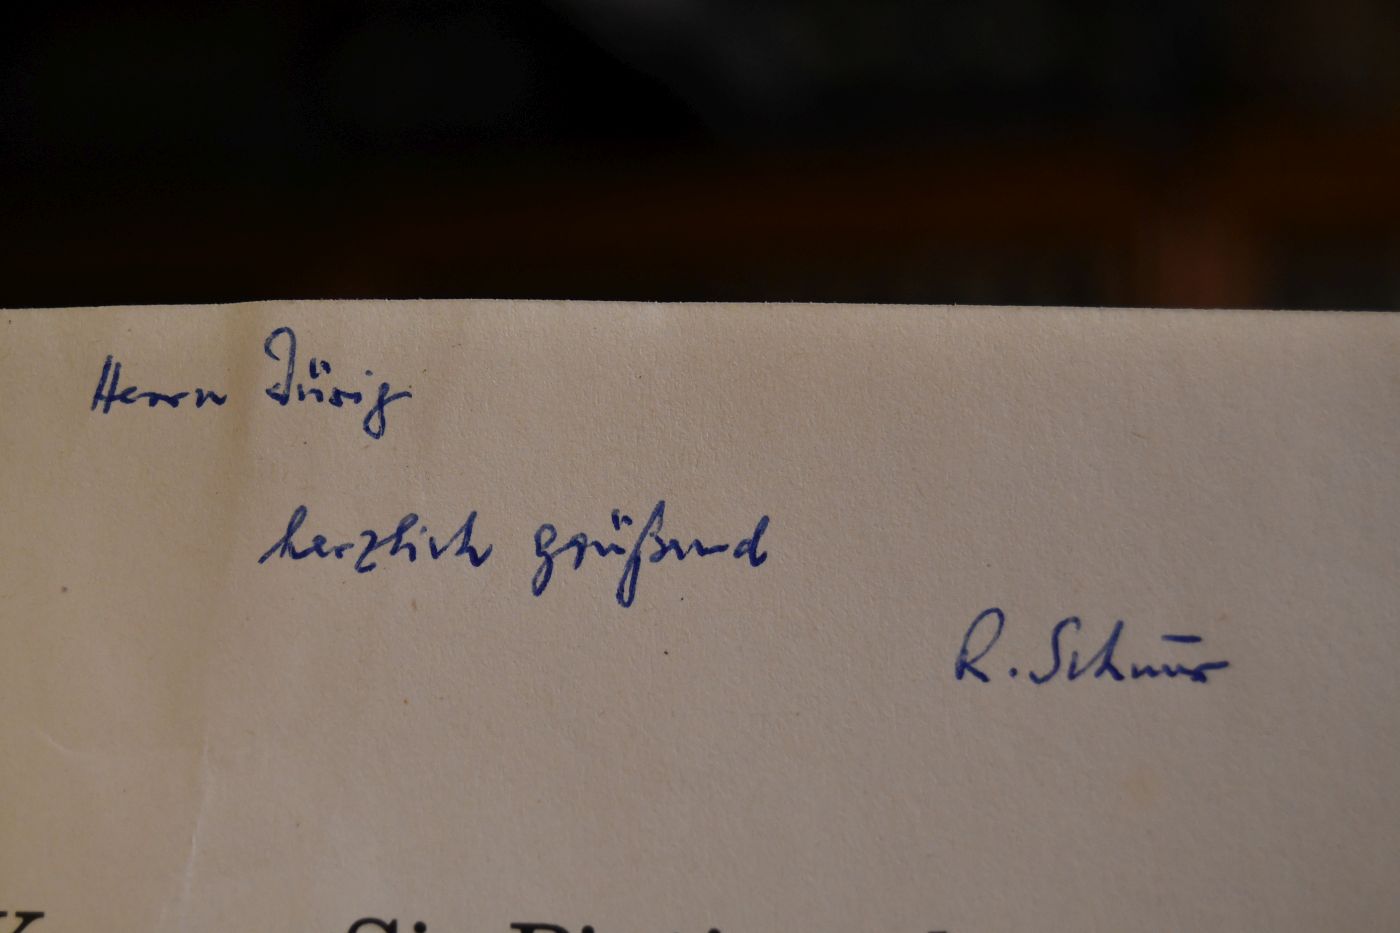 Herrn Dürig
herzlich grüßend
R. Schnur